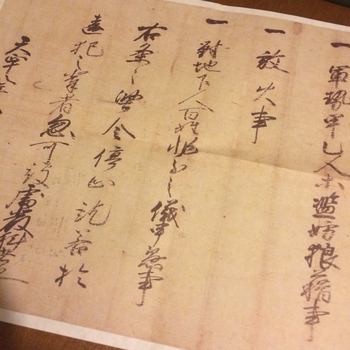 一 軍勢甲乙人等濫妨狼藉事
一 放火事
一 對地下人百姓非分之儀申懸事
右条々堅令停止訖若於
違犯之輩者忽可被處嚴科者也
天正